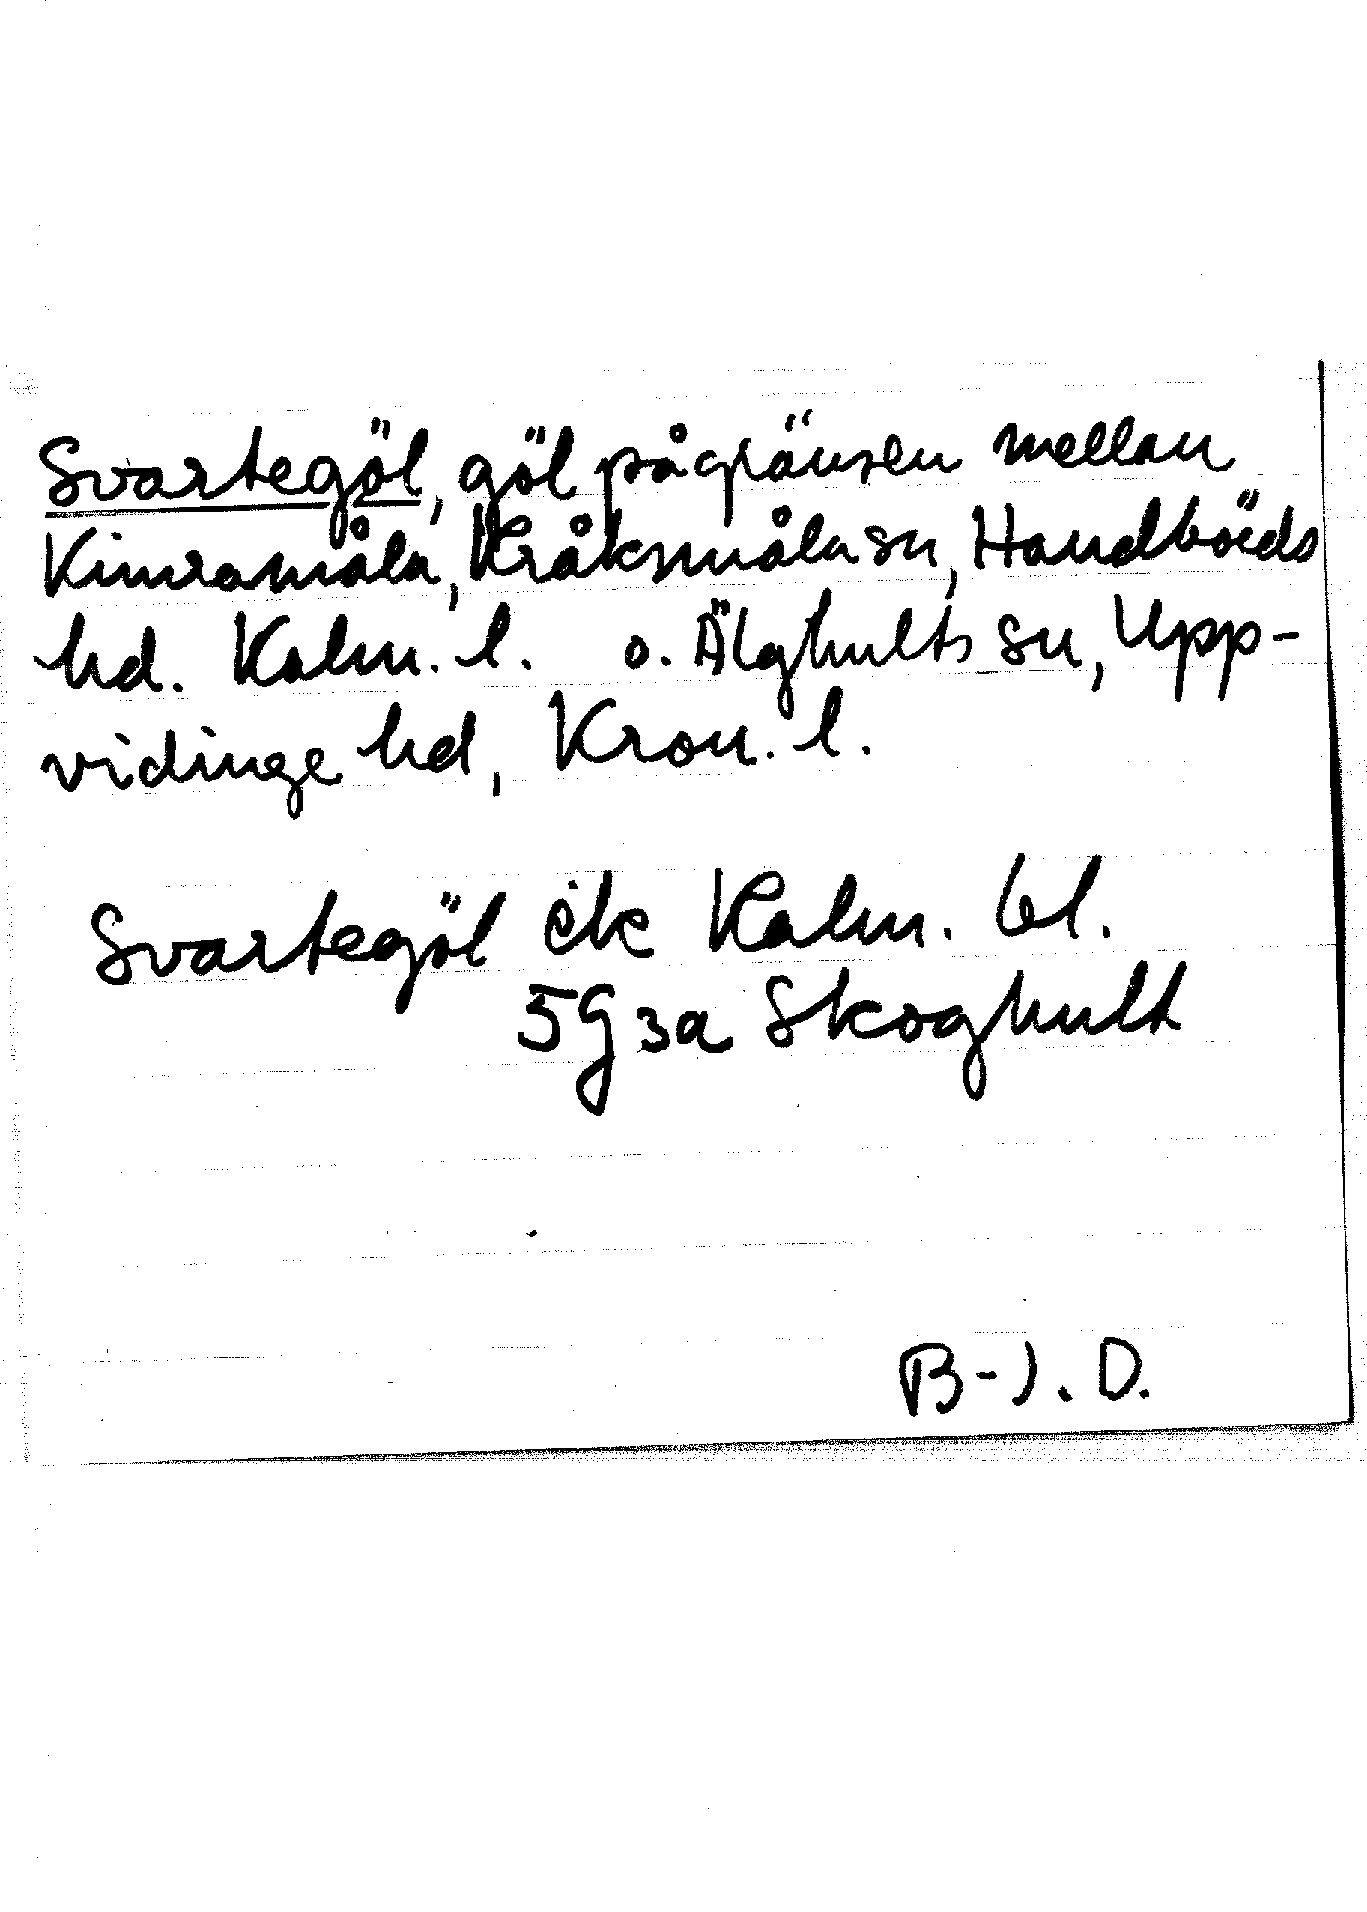 Svartegöl, göl på gränsen mellan
Kimramåla, Kråksmåla sn, Handbörds
hd. Kalm. l. o. Älghults sn, Upp-
vidinge hd, Kron. l.
Svartegöl ek Kalm. bl.
5G3a Skoghult
B-J. D.